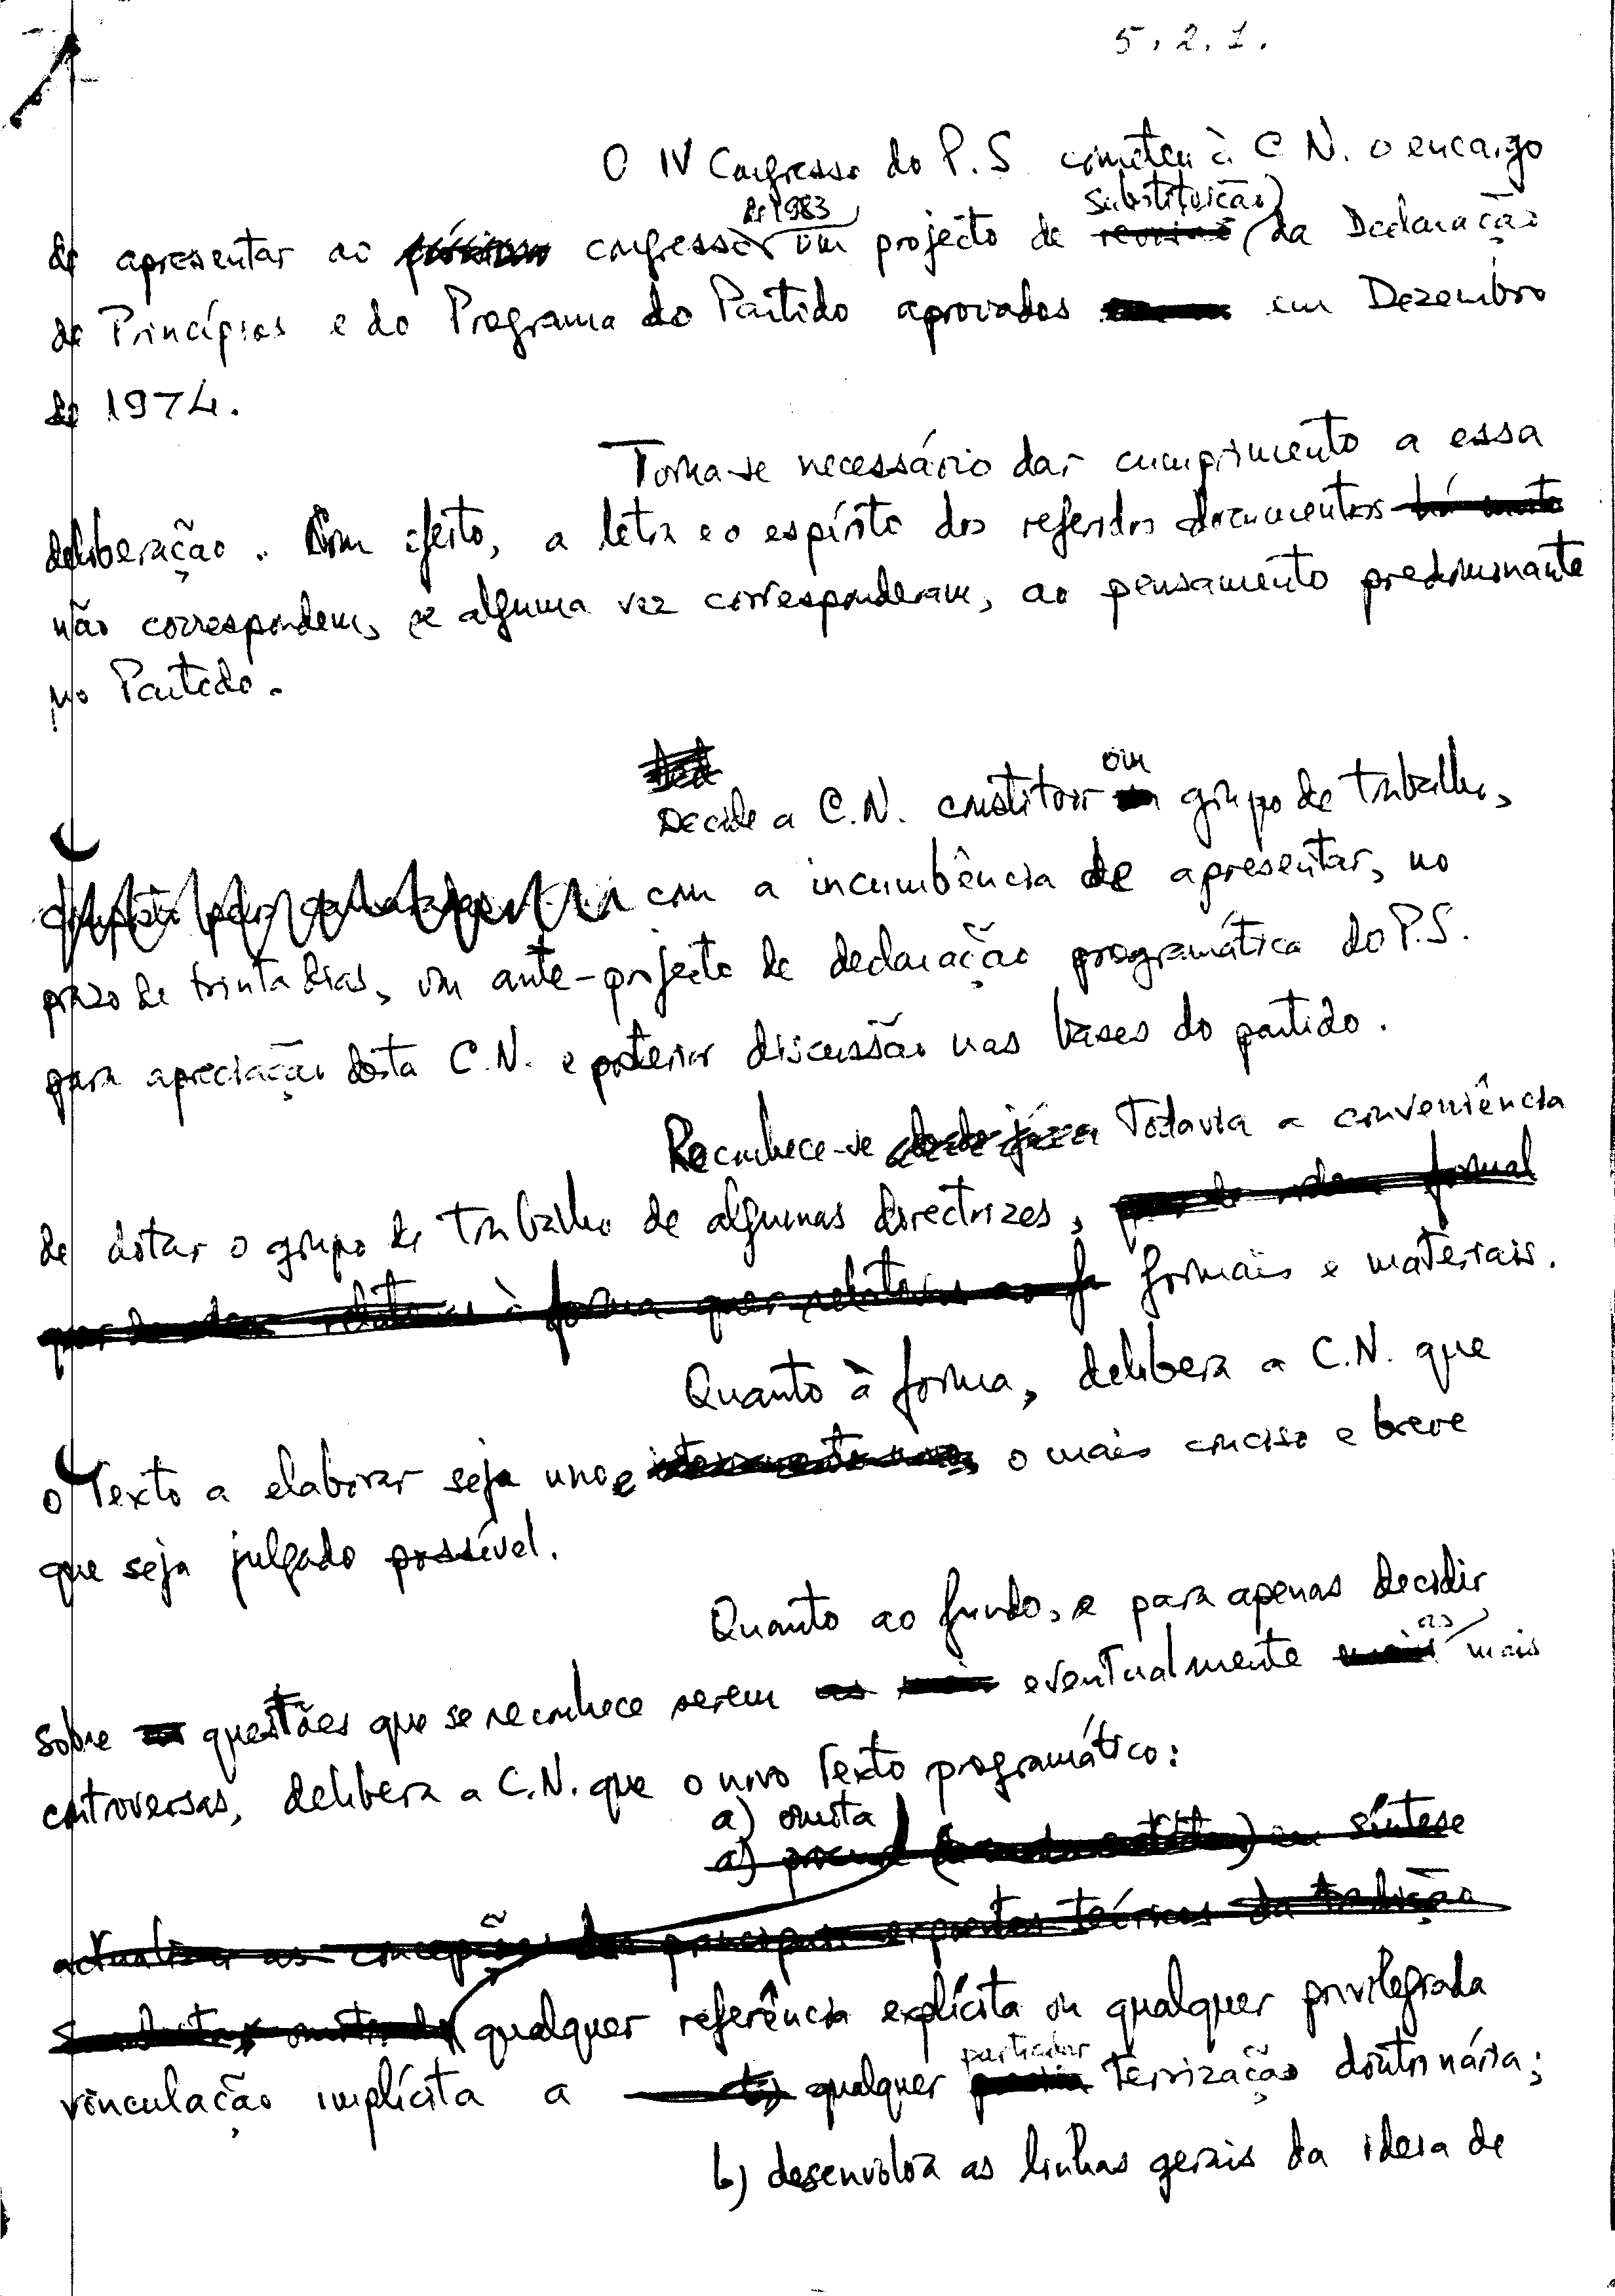 5.2.1.
O IV Congresso do P.S. cometeu à C.N. o encargo
de 1983 substituição
de apresentar ao próximo congresso um projecto de revisão da Declaração
de Princípios e do Programa do Partido aprovados em Dezembro
de 1974.
Torna-se necessário dar cumprimento a essa
deliberação. Com efeito, a letra e o espírito dos referidos documentos há muito
não correspondem, se alguma vez corresponderam, ao pensamento predominante
no Partido.
um
Decide a C.N. constituir um grupo de trabalho,
com a incumbência de apresentar, no
prazo de trinta dias, um ante-projecto de declaração programática do P.S.
para apreciação desta C.N. e posterior discussão nas bases do partido.
Reconhece-se desde já Todavia a conveniência
de dotar o grupo de trabalho de algumas directrizes, quer de ordem formal
quer de ordem relativas à forma quer relativas ao f formais e materiais.
Quanto à forma, delibera a C.N. que
o Texto a elaborar seja uno e o mais conciso e breve
que seja julgado possível.
Quanto ao fundo, e para apenas decidir
as
sobre as questões que se reconhece serem as mais eventualmente mais mais
controversas, delibera a C.N. que o novo Texto programático:
a) omita
a) em síntese
actualizar as concepções dos principais expoentes teóricos da tradição
omitindo qualquer referência explícita ou qualquer privilegiada
particular
vinculação implícita a b) qualquer teorização doutrinária;
b) desenvolva as linhas gerais da ideia de